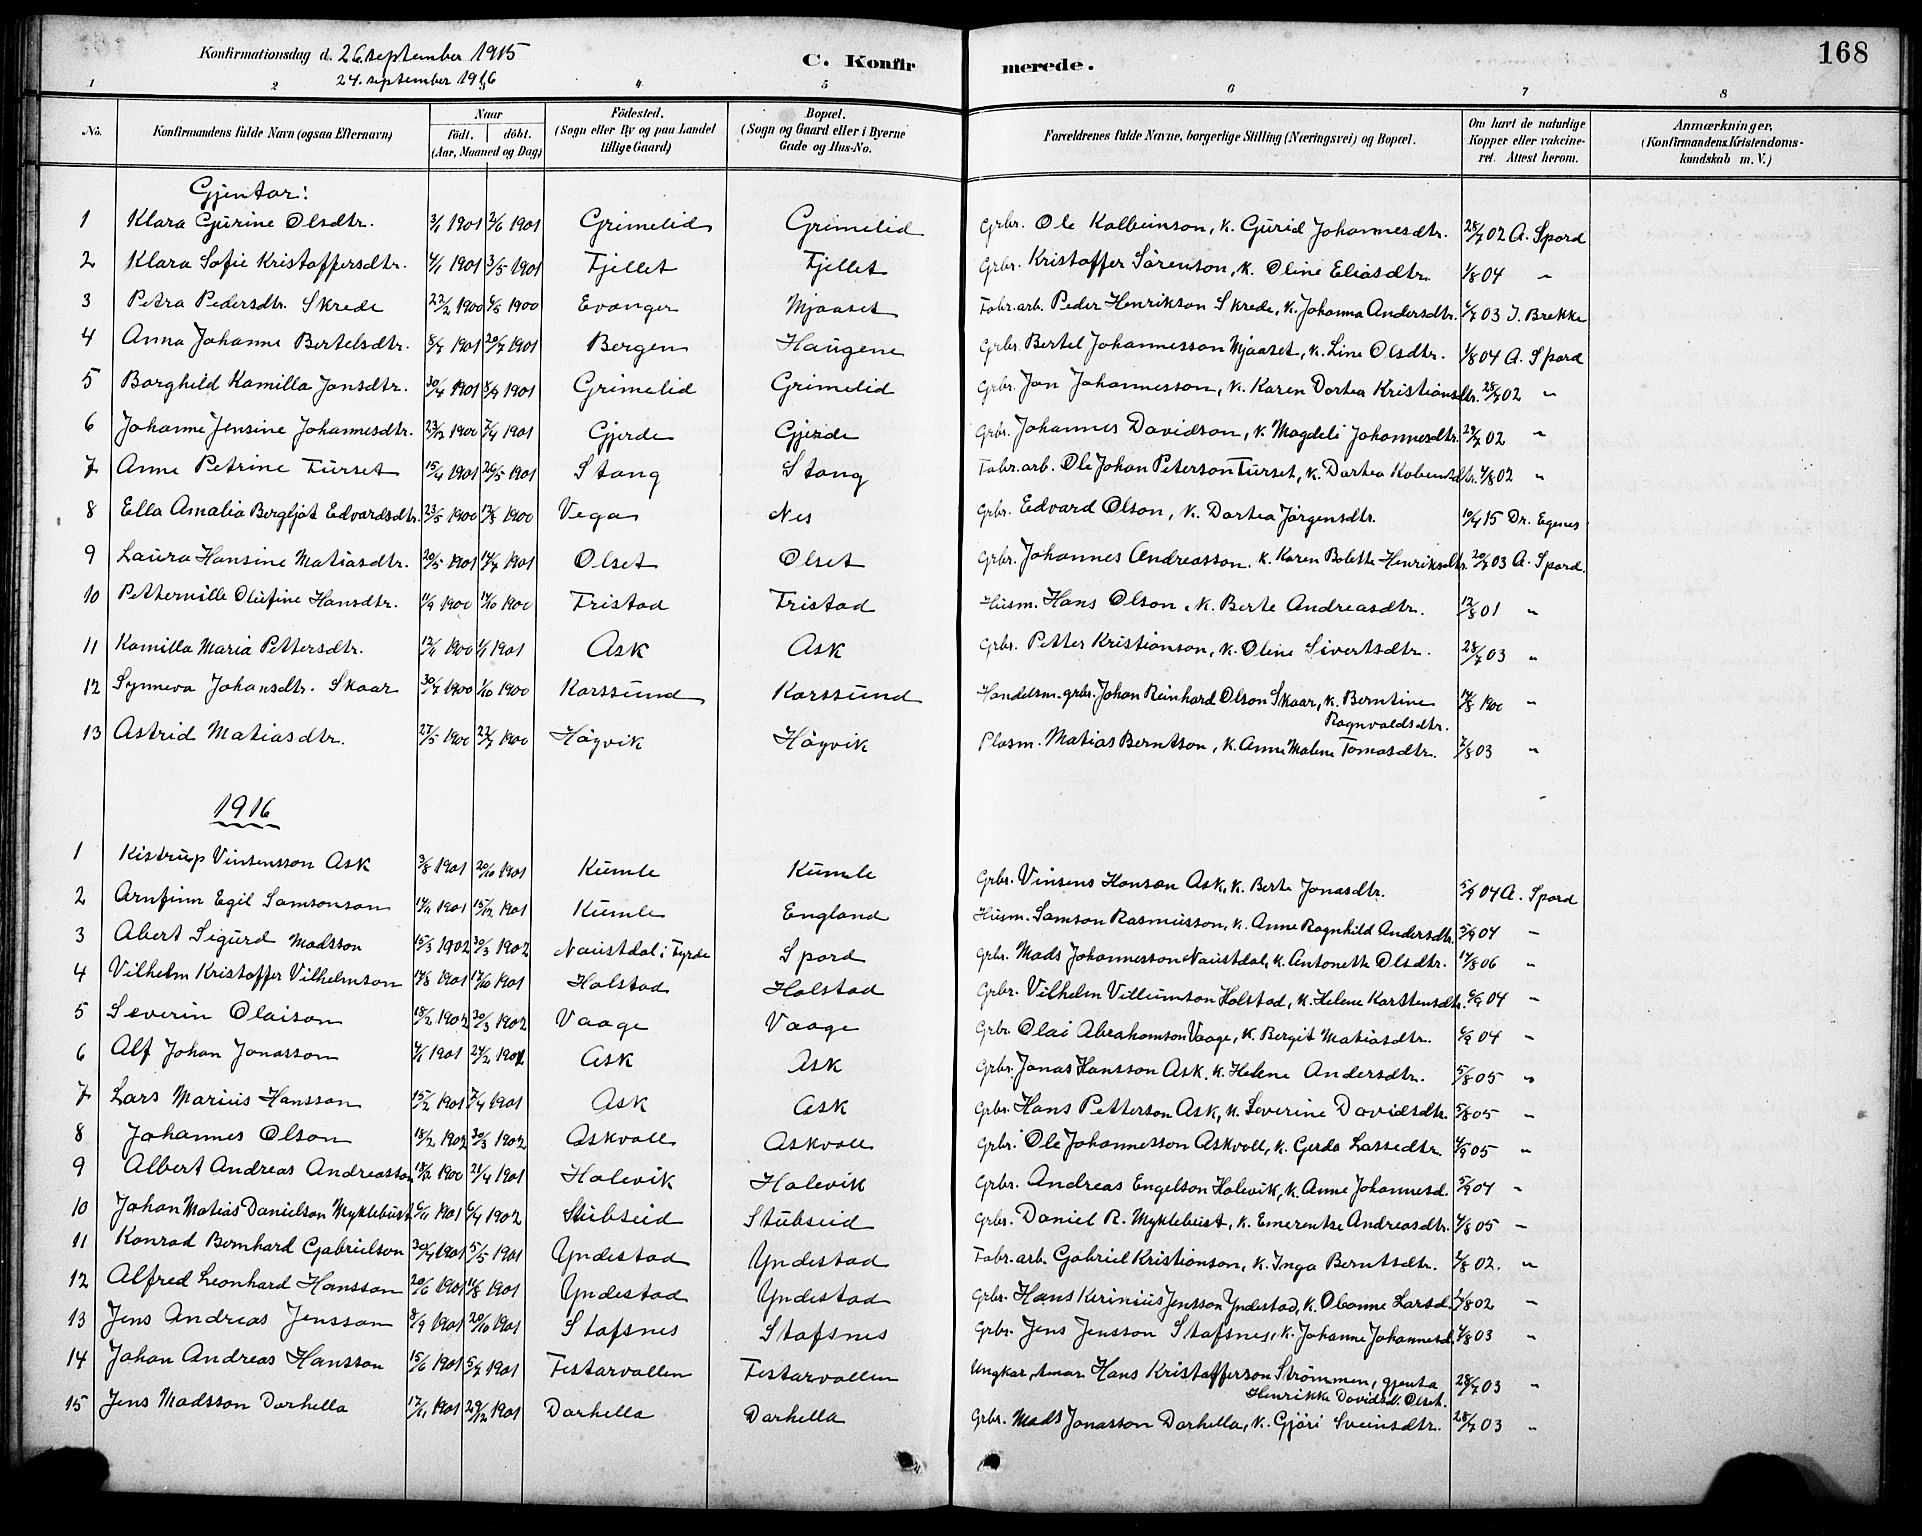 168
Konfirmationsdag d. 26. september 1915
24. september 1916
C. Konfirmerede.
1 2 4 5 6 7 8
No. Konfirmandens fulde Navn (ogsaa Efternavn) Naar födt. döbt. (Aar, Maaned og Dag) Födested. (Sogn eller By og paa Landet tillige Gaard) Bopæl. (Sogn og Gaard eller i Byerne Gade og Hus-No. Forældrenes fulde Navne, borgerlige Stilling (Næringsvei) og Bopæl. Om havt de naturlige Kopper eller vakcineret. Attest herom. Anmærkninger, (Konfirmandens Kristendomskundskab m. V.)
Gjentar:
1 Klara Gjurine Olsdtr. 3/1 1901 2/6 1901 Grimelid Grimelid Grbr. Ole Kolbeinson, k. Gurid Johannesdtr. 28/7 02 A. Spord
2 Klara Sofie Kristoffersdtr. 4/1 1901 3/5 1901 Fjellet Fjellet Grbr. Kristoffer Sörenson, k. Oline Eliasdtr. 1/8 04 "
3 Petra Pedersdtr. Skrede 22/2 1900 6/5 1900 Evanger Mjaaset Fabr.arb. Peder Henrikson Skrede, k. Johanna Andersdtr. 6/7 03 I. Brekke
4 Anna Johanne Bertelsdtr. 8/7 1901 20/7 1901 Bergen Haugene Grbr. Bertel Johannesson Mjaaset, k. Line Olsdtr. 1/8 04 A. Spord
5 Borghild Kamilla Jonsdtr. 30/4 1901 8/9 1901 Grimelid Grimelid Grbr. Jon Johannesson, k. Karen Dortea Kristiansdtr. 28/7 02 "
6 Johanne Jensine Johannesdtr. 23/12 1900 7/4 1901 Gjerde Gjerde Grbr. Johannes Davidson, k. Magdeli Johannesdtr. 29/7 02 "
7 Anne Petrine Furset 15/4 1901 26/5 1901 Stang Stang Fabr.arb. Ole Johan Peterson Furset, k. Dortea Kobenstdtr. 4/8 02 "
8 Ella Amalia Bergljot Edvardsdtr. 23/5 1900 12/8 1900 Vega Nes Grbr. Edvard Olson, k. Dortea Jörgensdtr. 10/4 15 Dr. Egenes
9 Laura Hansine Matiasdtr. 20/5 1901 14/7 1901 Olset Olset Grbr. Johannes Andreasson, k. Karen Bolette Henriksdtr. 20/7 03 A. Spord.
10 Petternille Olufine Hansdtr. 11/9 1900 14/10 1900 Tristad Tristad Husm. Hans Olson, k. Berte Andreasdtr. 12/8 01 "
11 Kamilla Maria Pettersdtr. 12/11 1900 1/1 1901 Ask Ask Grbr. Petter Kristianson, k. Oline Sivertsdtr. 28/7 03 "
12 Synneva Johansdtr. Skaar 30/7 1900 1/10 1900 Korssund Korssund Handelsm. grbr. Johan Reinhard Olson Skaar, k. Berntine Ragnvaldsdtr. 14/8 1900 "
13 Astrid Matiasdtr. 27/5 1900 22/7 1900 Högvik Högvik Plasm. Matias Berntson, k. Anne Malene Tomasdtr. 7/8 03 "
1916
1 Kistrup Vinsensson Ask 3/8 1901 20/10 1901 Kumle Kumle Grbr. Vinsens Hanson Ask, k. Berte Jonasdtr. 5/9 04 A. Spord
2 Arnfinn Egil Samsonson 14/11 1901 15/12 1901 Kumle England Husm. Samson Rasmusson, k. Anne Ragnhild Andersdtr. 5/9 04 "
3 Abert Sigurd Madsson 15/3 1902 30/3 1902 Naustdal i Fyrde Spord Grbr. Mads Johannesson Naustdal, k. Antonette Olsdtr. 14/8 06 "
4 Vilhelm Kristoffer Vilhelmson 14/8 1901 14/10 1901 Holstad Holstad Grbr. Vilhelm Villumson Holstad, k. Helene Karstensdtr. 6/9 04 "
5 Severin Olaison 18/2 1902 30/3 1902 Vaage Vaage Grbr. Olai Abrahamson Vaage, k. Bergit Matiasdtr. 6/9 04 "
6 Alf Johan Jonasson 4/1 1901 24/2 1901 Ask Ask Grbr. Jonas Hansson Ask, k. Helene Andersdtr. 5/8 05 "
7 Lars Marius Hansson 15/2 1901 7/4 1901 Ask Ask Grbr. Hans Petterson Ask, k. Severine Davidsdtr. 5/8 05 "
8 Johannes Olson 18/2 1902 30/3 1902 Askvoll Askvoll Grbr. Ole Johannesson Askvoll, k. Gerda Lassedtr. 4/9 05 "
9 Albert Andreas Andreasson 18/12 1900 21/4 1901 Holevik Holevik Grbr. Andreas Engelson Holevik, k. Anne Johannesd. 5/9 04 "
10 Johan Matias Danielson Myklebust 6/11 1901 6/4 1902 Stubseid Stubseid Grbr. Daniel R. Myklebust, k. Emerentse Andreasdtr. 4/8 05 "
11 Konrad Bernhard Gabrielson 30/4 1901 5/5 1901 Yndestad Yndestad Fabr.arb. Gabriel Kristianson, k. Inga Berntsdtr. 2/8 02. "
12 Alfred Leonhard Hansson 20/6 1901 11/8 1901 Yndestad Yndestad Grbr. Hans Kerinius Jensson Yndestad, k. Oleanne Larsd. 2/8 02 "
13 Jens Andreas Jensson 8/9 1901 20/10 1901 Stafsnes Stafsnes Grbr. Jens Jensson Stafsnes, k. Johanne Johannesd. 4/8 03 "
14 Johan Andreas Hansson 15/6 1901 5/7 1901 Festarvollen Festarvollen Ungkar, Hans Kristofferson Strömmen, gjenta Henrikke Davidsd. Olset. 28/7 03 "
15 Jens Madsson Darhella 12/11 1901 29/12 1901 Darhella Darhella Grbr. Mads Jonasson Darhella, k. Gjöri Sveinsdtr. 28/7 03 "